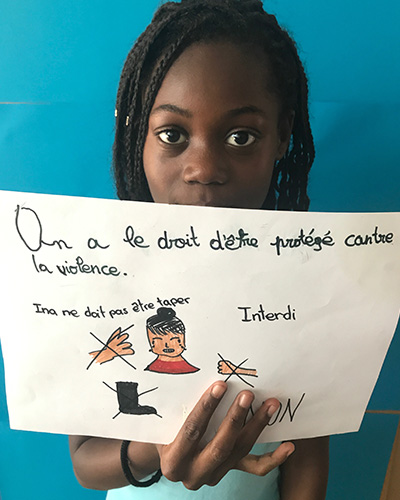 On a le droit d'être protégé contre
la violence.
Ina ne doit pas être taper
Interdi
NON